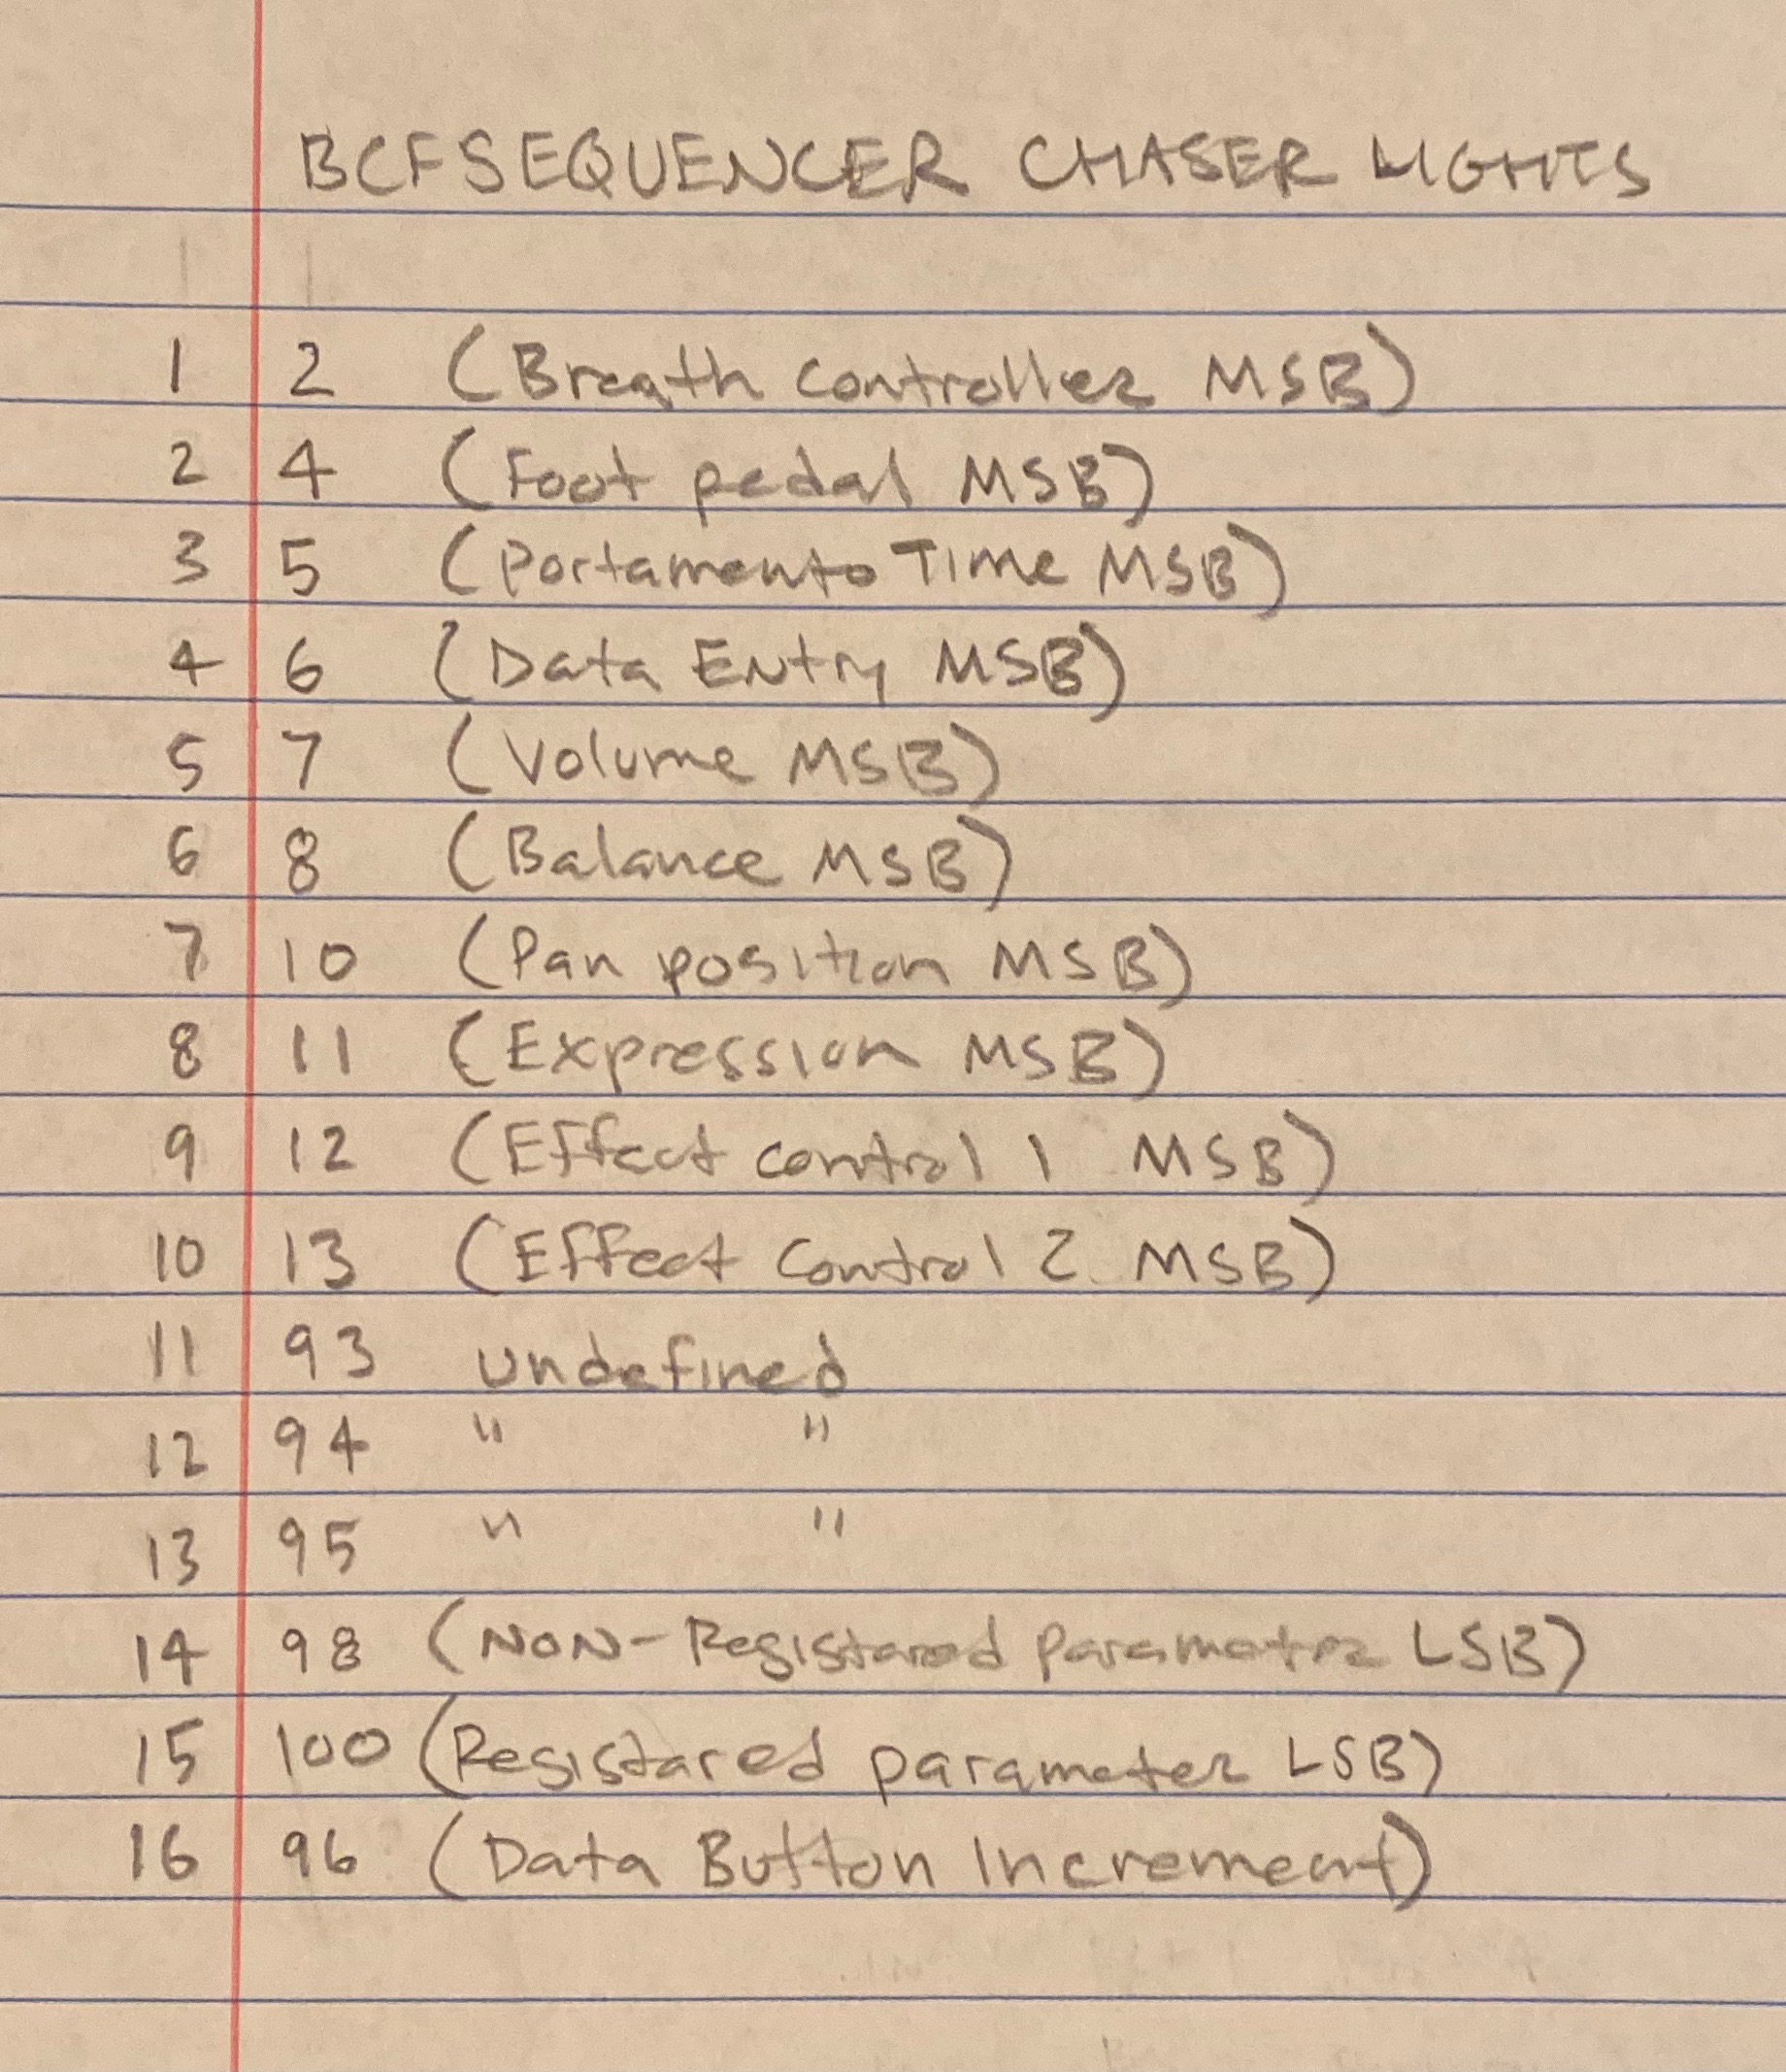 BCFSEQUENCER CHASER LIGHTS
1 2 (Breath controller MSB)
2 4 (Foot pedal MSB)
3 5 (Portamento Time MSB)
4 6 (Data Entry MSB)
5 7 (Volume MSB)
6 8 (Balance MSB)
7 10 (Pan position MSB)
8 11 (Expression MSB)
9 12 (Effect control 1 MSB)
10 13 (Effect Control 2 MSB)
11 93 undefined
12 94 " "
13 95 " "
14 98 (NON-Registared parameter LSB)
15 100 (Registared parameter LSB)
16 96 (Data Button Increment)